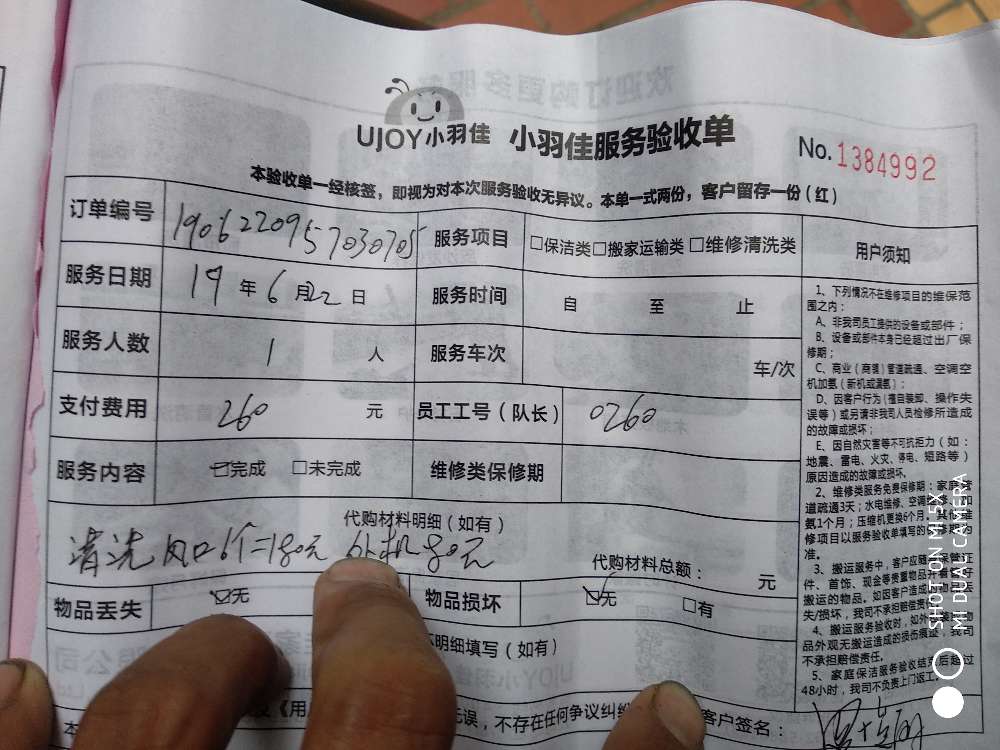 UJOY小羽佳 小羽佳服务验收单
No.1384992
本验收单一经核签，即视为对本次服务验收无异议。本单一式两份，客户留存一份（红）
订单编号 1906220957030705 服务项目 □保洁类□搬家运输类□维修清洗类
服务日期 19年6月22日 服务时间 自 至 止
服务人数 1 人 服务车次 车/次
支付费用 260 元 员工工号（队长） 0260
服务内容 ☑完成 □未完成 维修类保修期
代购材料明细（如有）
清洗风口6个=180元 外机80元
代购材料总额： 元
物品丢失 ☑无 物品损坏 ☑无 □有
明细填写（如有）
《用
无误，不存在任何争议纠纷
客户签名：
用户须知
1、下列情况不在维修项目的维保范
围之内：
A、非我司员工提供的设备或部件；
B、设备或部件本身已经超过出厂保
修期；
C、商业（商铺）管道疏通、空调空
机加氨（新机或漏氨）；
D、因客户行为（擅自装卸、操作失
误等）或另请非我司人员检修所造成
的故障或损坏；
E、因自然灾害等不可抗拒力（如：
地震、雷电、火灾、停电、短路等）
原因造成的故障或损坏。
2、维修类服务免费保修期：家庭管
道疏通3天；水电维修、空调
氨1个月；压缩机更换6个月。其他维
修项目以服务验收单填写的
准。
3、搬运服务中，客户应随
件、首饰、现金等贵重物品并
搬运的物品。如因客户造成
失/损坏，我司不承担赔偿责
4、搬运服务验收时，如外
品外观无搬运造成的损伤痕迹，我司
不承担赔偿责任。
5、家庭保洁服务验收结束后超过
48小时，我司不负责上门返工。
SHOT ON MI 5X
MI DUAL CAMERA